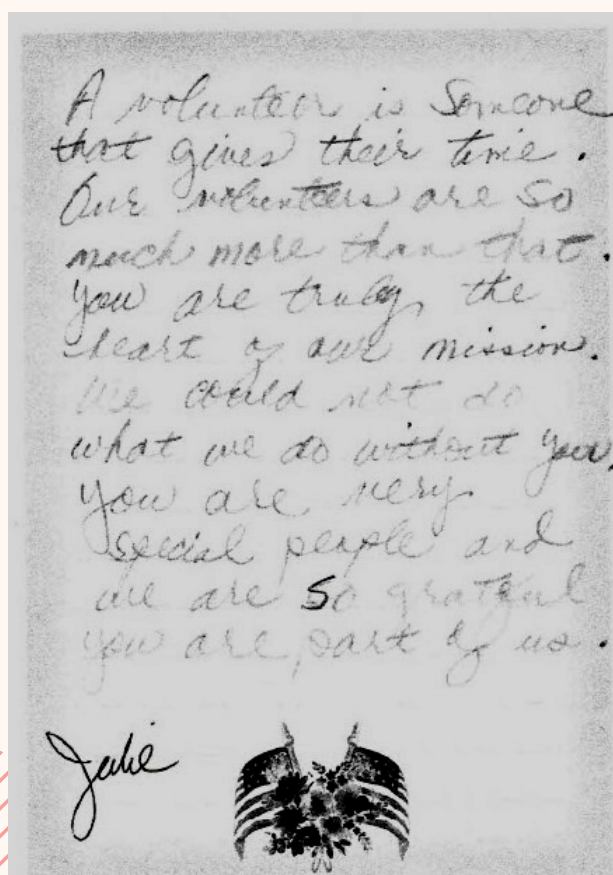 A volunteer is Someone
that gives their time.
Our volunteers are so
much more than that.
You are truly the
heart of our mission.
We could not do
what we do without you.
You are very
special people and
we are so grateful
you are part of us.
Julie